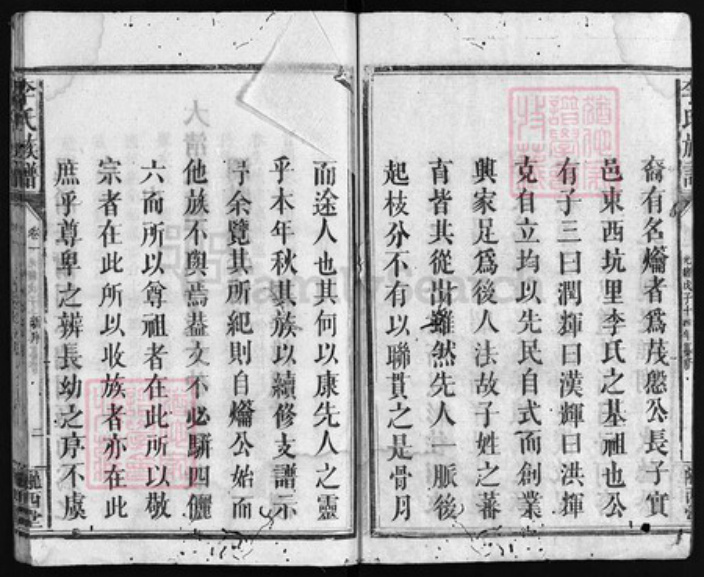 裔有名爚者爲茂愻公長子實
邑東西坑里李氏之基祖也公
有子三曰潤輝曰漢輝曰洪輝
克自立均以先民自式而創業
興家足爲後人法故子姓之蕃
育皆其從出雖然先人一脈後
起枝分不有以聯貫之是骨月
而途人也其何以康先人之靈
乎本年秋其族以續修支譜示
予余覽其所紀則自爚公始而
他族不與焉葢文不必駢四儷
六而所以尊祖者在此所以敬
宗者在此所以收族者亦在此
庶乎尊卑之辨長幼之序不虞
李氏族譜
卷一
二
隴西堂
FamilySearch